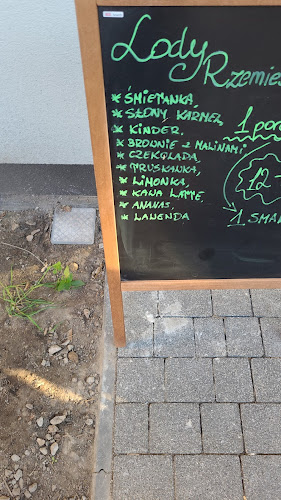 Lody
Rzemieś
* ŚMIETANKA,
* SŁONY KARMEL,
* KINDER,
* BROWNIE Z MALINAMI
* CZEKOLADA,
* TRUSKAWKA,
* LIMONKA,
* KAWA LATTE,
* ANANAS,
* LAWENDA
1 por
12-
1 SMA